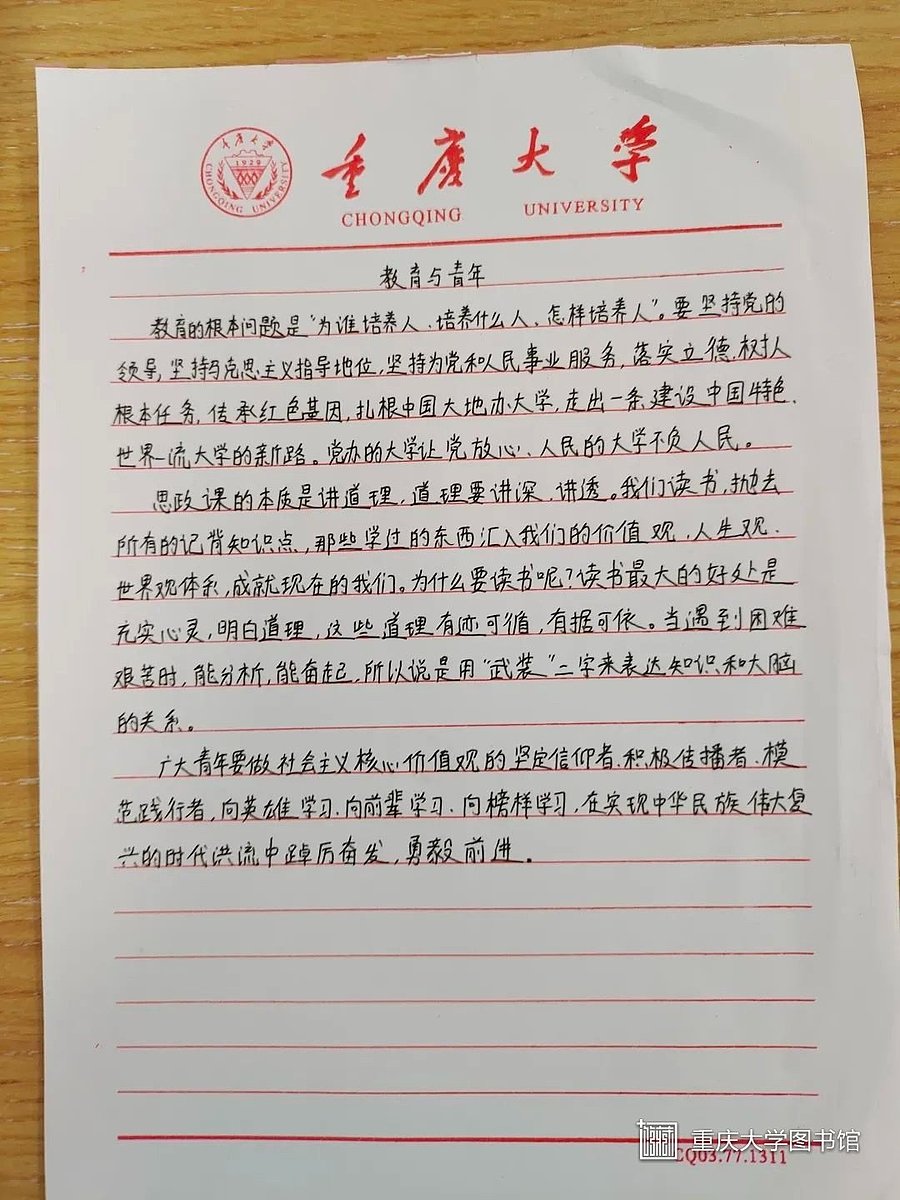 重庆大学
CHONGQING UNIVERSITY
重庆大学
1929
CHONGQING UNIVERSITY
教育与青年
教育的根本问题是“为谁培养人、培养什么人、怎样培养人”。要坚持党的
领导,坚持马克思主义指导地位,坚持为党和人民事业服务,落实立德树人
根本任务,传承红色基因,扎根中国大地办大学,走出一条建设中国特色、
世界一流大学的新路。党办的大学让党放心、人民的大学不负人民。
思政课的本质是讲道理,道理要讲深、讲透。我们读书,抛去
所有的记背知识点,那些学过的东西汇入我们的价值观、人生观、
世界观体系,成就现在的我们。为什么要读书呢?读书最大的好处是
充实心灵,明白道理,这些道理有迹可循,有据可依。当遇到困难
艰苦时,能分析,能奋起,所以说是用“武装”二字来表达知识和大脑
的关系。
广大青年要做社会主义核心价值观的坚定信仰者、积极传播者、模
范践行者,向英雄学习、向前辈学习、向榜样学习,在实现中华民族伟大复
兴的时代洪流中踔厉奋发,勇毅前进。
重庆大学图书馆
CQ03.77.1311